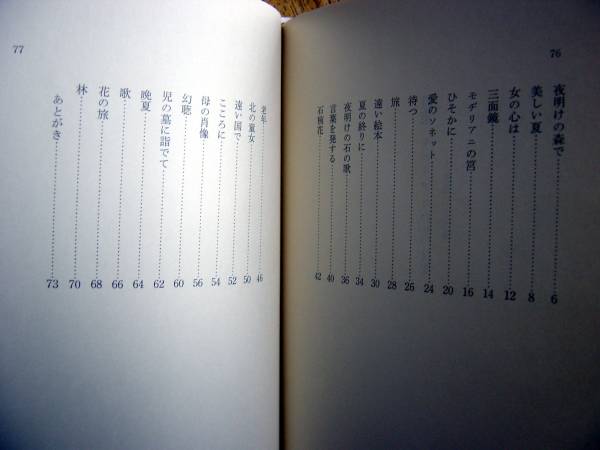 76
夜明けの森で 6
美しい夏 8
女の心は 12
三面鏡 14
モヂリアニの筥 16
ひそかに 20
愛のソネット 24
待つ 26
旅 28
遠い絵本 30
夏の終りに 34
夜明けの石の歌 36
言葉を発する 40
石楠花 42
77
老年 46
北の童女 50
遠い国で 52
こころに 54
母の肖像 56
幻聴 60
児の墓に詣でて 62
晩夏 64
歌 66
花の旅 68
林 70
あとがき 73